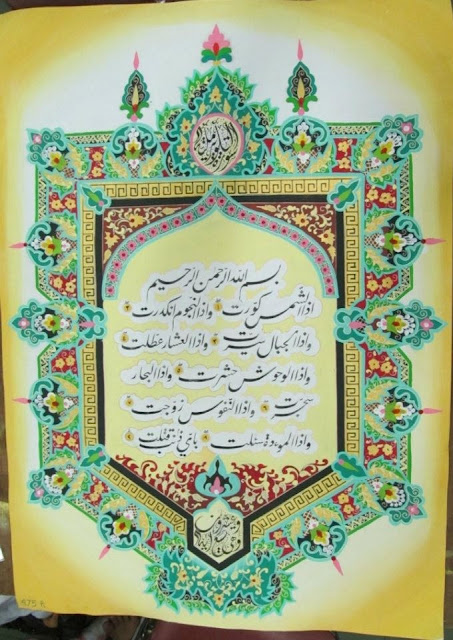 بسم الله الرحمن الرحيم
اذا الشمس كورت واذا النجوم انكدرت
واذا الجبال سيرت واذا العشار عطلت
واذا الوحوش حشرت واذا البحار
سجرت واذا النفوس زوجت
واذا الموءدة سئلت باي ذنب قتلت